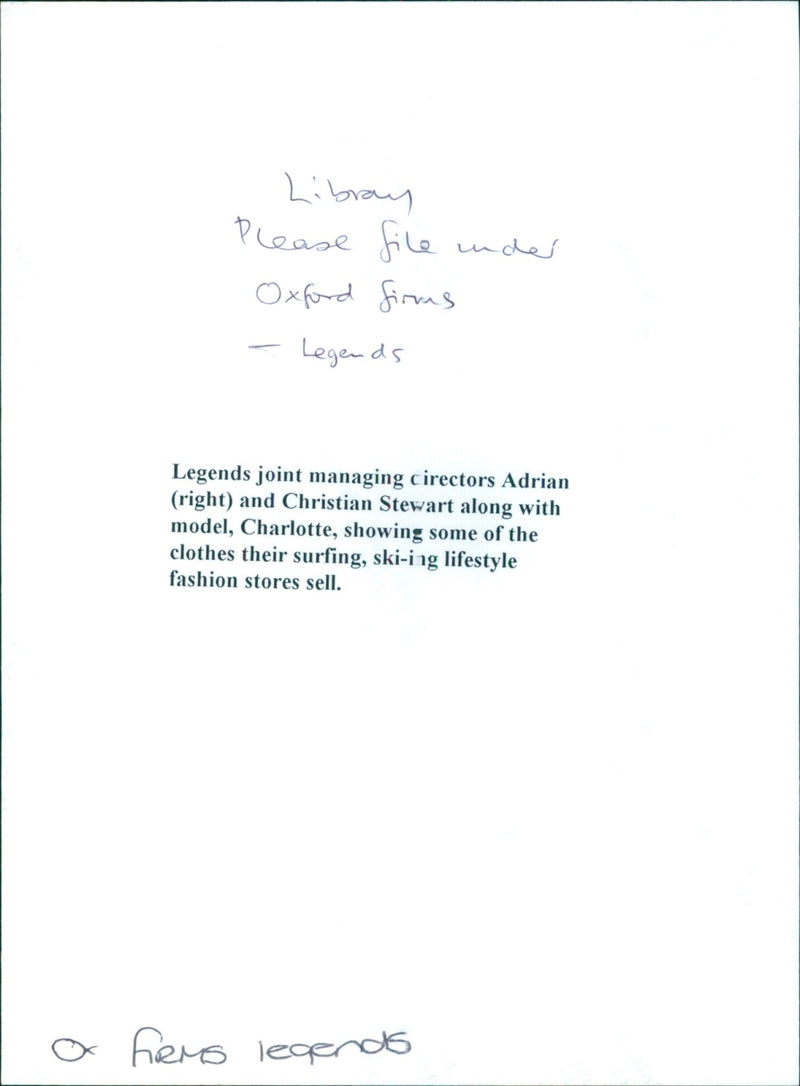 Library
Please file under
Oxford firms
- Legends
Legends joint managing directors Adrian
(right) and Christian Stewart along with
model, Charlotte, showing some of the
clothes their surfing, ski-ing lifestyle
fashion stores sell.
Ox firms legends